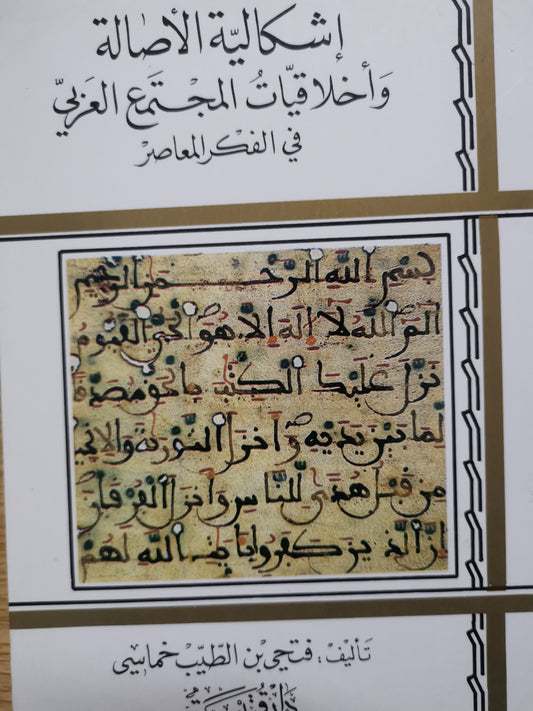 إشكاليّة الأصالة
وَأخلاقيّاتُ المجتمَع العَربيّ
في الفكر المعاصر
بسم الله الرحمن الرحيم
الم الله لا إله إلا هو الحي القيوم
نزل عليك الكتب بالحق مصدقا
لما بين يديه وأنزل التورية والانجيل
من قبل هدى للناس وأنزل الفرقان
إن الذين كفروا بايت الله لهم
تأليف: فتحي بن الطيّب خماسي